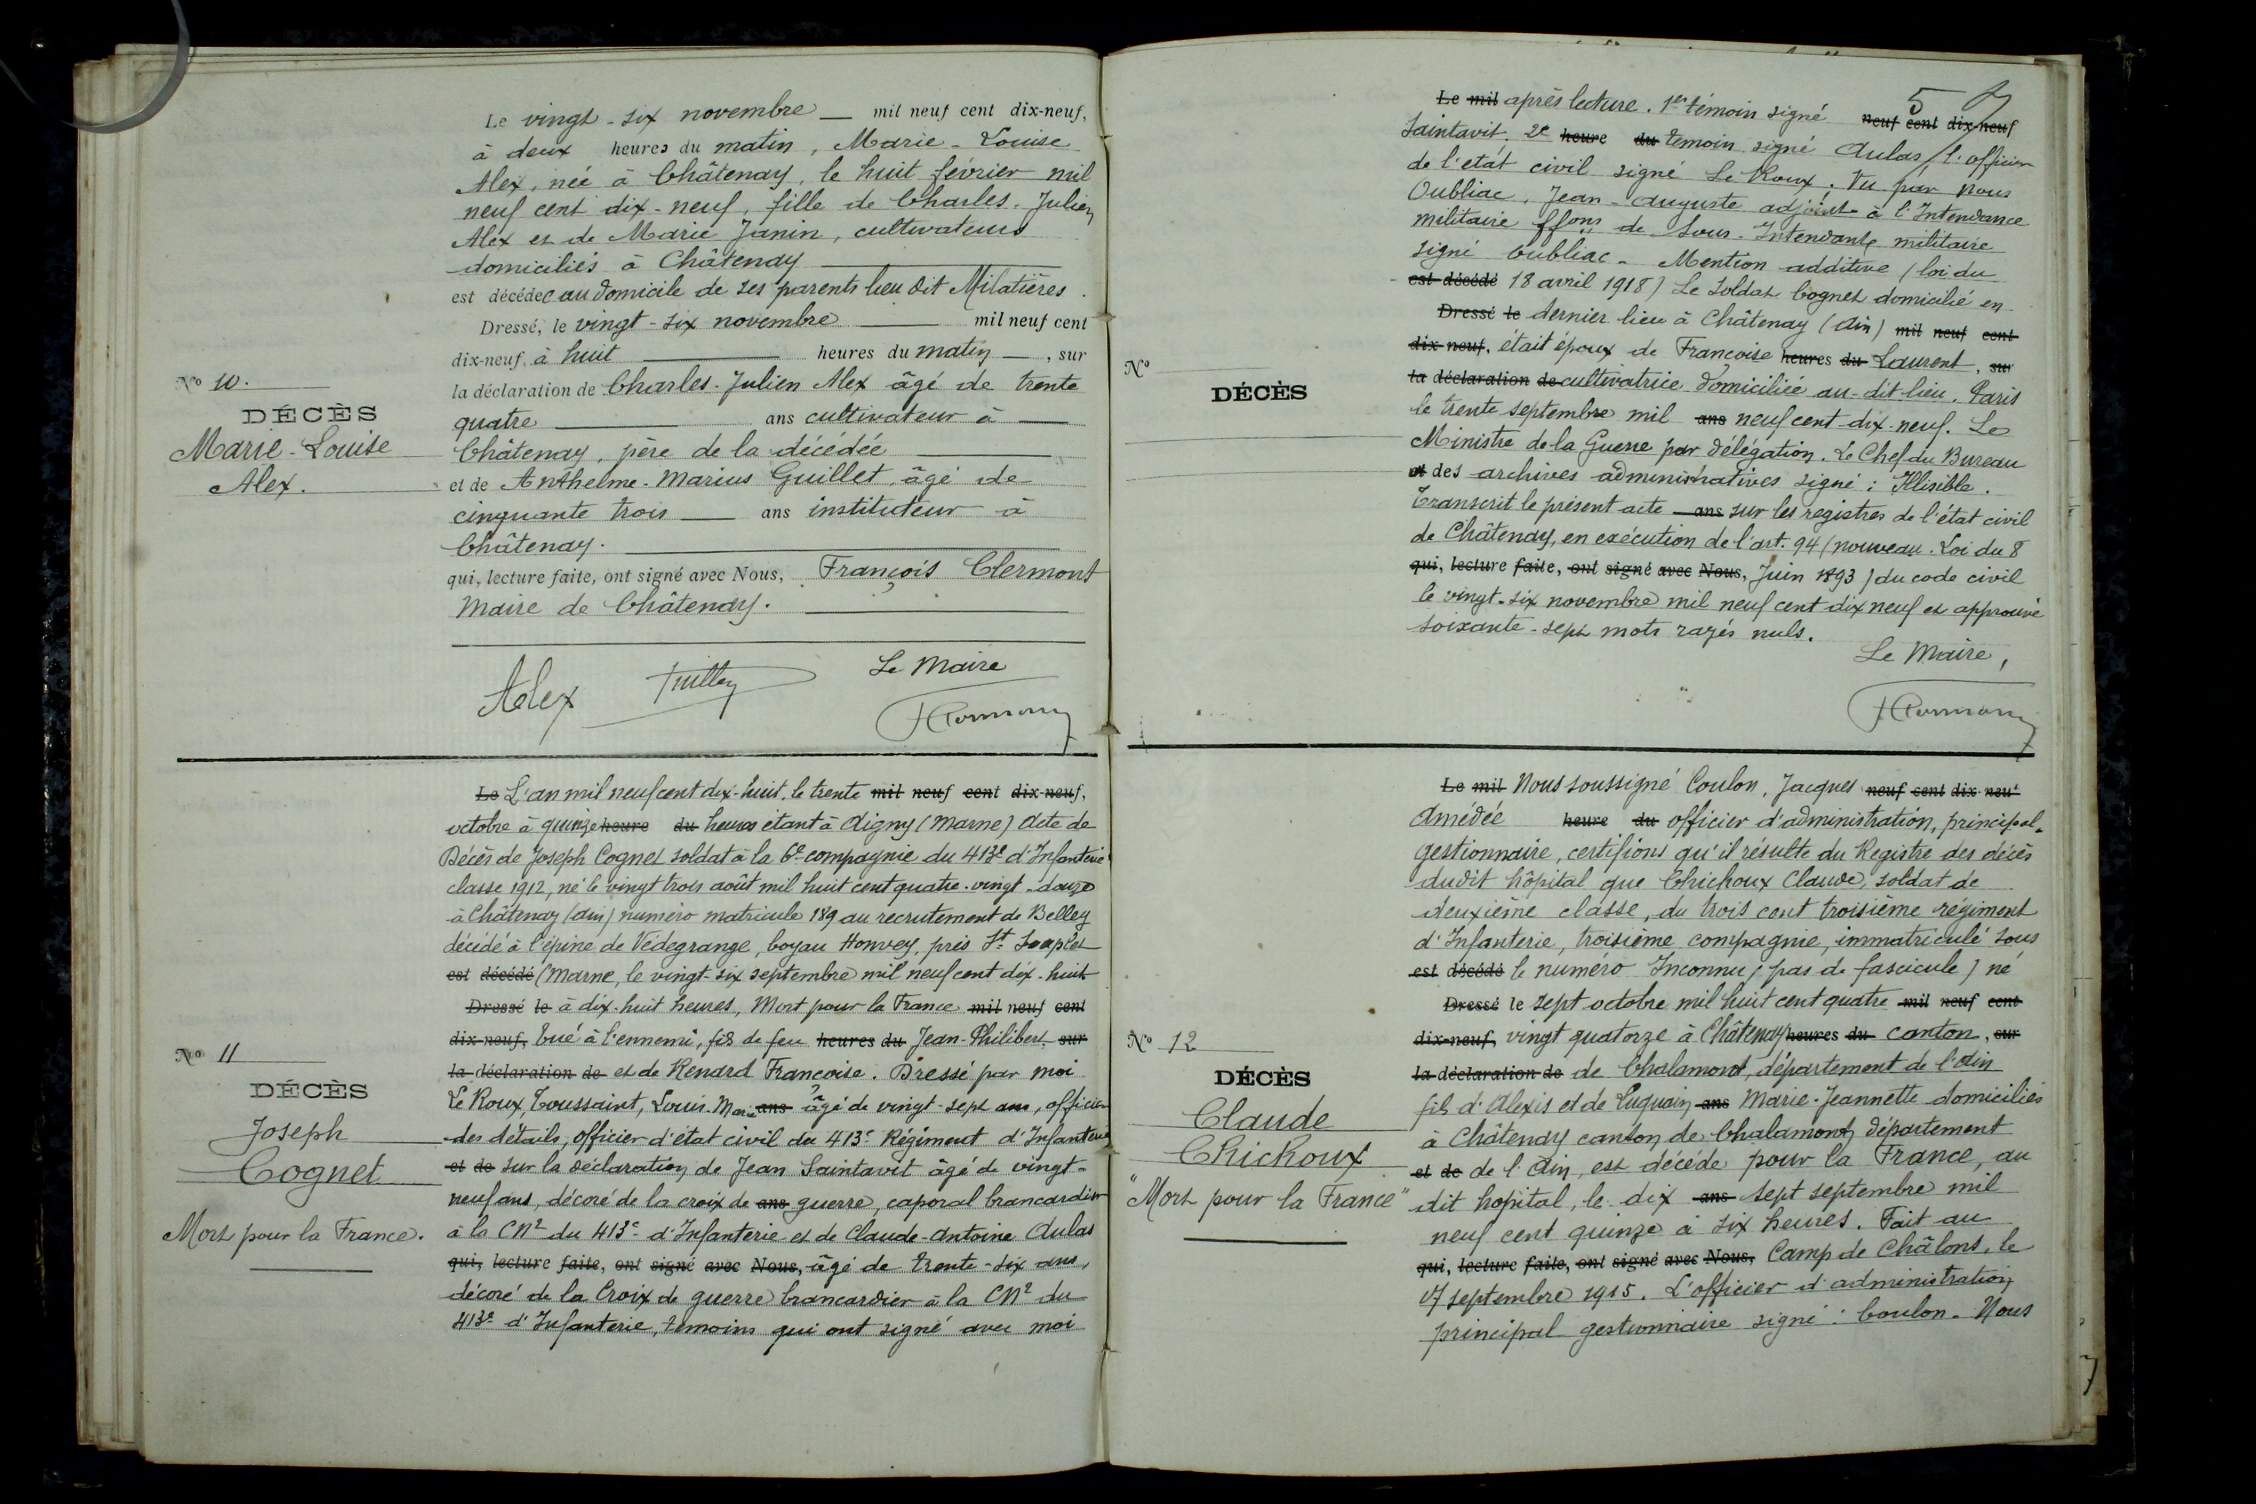 Le vingt-six novembre — mil neuf cent dix-neuf,
à deux heures du matin, Marie-Louise
Alex, née à Châtenay, le huit février mil
neuf cent dix-neuf, fille de Charles-Julien
Alex et de Marie Janin, cultivateurs
domiciliés à Châtenay
est décédée au domicile de ses parents lieu dit Milatières.
Dressé, le vingt-six novembre mil neuf cent
dix-neuf, à huit heures du matin, sur
la déclaration de Charles-Julien Alex âgé de trente
quatre ans cultivateur à
Châtenay, père de la décédée
et de Anthelme-Marius Guillet, âgé de
cinquante trois ans instituteur à
Châtenay.
qui, lecture faite, ont signé avec Nous, François Clermont
Maire de Châtenay.
No 10.
DÉCÈS
Marie-Louise
Alex.
Alex
Le Maire
Le L'an mil neuf cent dix-huit, le trente mil neuf cent dix-neuf,
octobre à quinze heure du heures etant à Aigny (Marne) Acte de
Décès de Joseph Cognet soldat à la 6e compagnie du 413e d'Infanterie
classe 1912, né le vingt trois août mil huit cent quatre-vingt-douze
à Châtenay (Ain) numéro matricule 189 au recrutement de Belley
décédé à l'épine de Védegrange, boyau Honvey, près St Souplet
est décédé (Marne, le vingt-six septembre mil neuf cent dix-huit
Dressé le à dix-huit heures, Mort pour la France mil neuf cent
dix-neuf, tué à l'ennemi, fils de feu heures du Jean-Philibert, sur
la déclaration de et de Renard Françoise. Dressé par moi
Le Roux, Toussaint, Louis-Marie ans âgé de vingt-sept ans, officier
des détails, officier d'état civil du 413e Régiment d'Infanterie
et de sur la déclaration de Jean Saintavit âgé de vingt-
neuf ans, décoré de la croix de ans guerre, caporal brancardier
à la CM2 du 413e d'Infanterie et de Claude-Antoine Aulas
qui, lecture faite, ont signé avec Nous, âgé de trente-six ans,
décoré de la Croix de guerre brancardier à la CM2 du
413e d'Infanterie, témoins qui ont signé avec moi
No 11
DÉCÈS
Joseph
Cognet
Mort pour la France.
5
Le mil après lecture. 1er témoin signé neuf cent dix-neuf
Saintavit, 2e heure du témoin signé Aulas, l'officier
de l'état civil signé Le Roux. Vu par nous
Oubliac, Jean-Auguste adjoint à l'Intendance
militaire ffons de Sous-Intendant militaire
signé Oubliac. Mention additive (loi du
est décédé 18 avril 1918) Le soldat Cognet domicilié en
Dressé le dernier lieu à Châtenay (Ain) mil neuf cent
dix-neuf, était époux de Françoise heures du Laurent, sur
la déclaration de cultivatrice domiciliée au-dit-lieu. Paris
le trente septembre mil ans neuf cent-dix-neuf. Le
Ministre de la Guerre par délégation. Le Chef du Bureau
et des archives administratives signé: Illisible.
Transcrit le présent acte ans sur les registres de l'état civil
de Châtenay, en exécution de l'art. 94 (nouveau. Loi du 8
qui, lecture faite, ont signé avec Nous, Juin 1893) du code civil
le vingt-six novembre mil neuf cent dix neuf et approuvé
soixante-sept mots rayés nuls.
Le Maire,
No
DÉCÈS
Le mil Nous soussigné Coulon, Jacques neuf cent dix-neuf
Amédée heure du officier d'administration, principal,
gestionnaire, certifions qu'il résulte du Registre des décès
dudit hôpital que Chichoux Claude, soldat de
deuxième classe, du trois cent troisième régiment
d'Infanterie, troisième compagnie, immatriculé sous
est décédé le numéro Inconnu (pas de fascicule) né
Dressé le sept octobre mil huit cent quatre mil neuf cent
dix-neuf, vingt quatorze à Châtenay heures du canton, sur
la déclaration de de Chalamont, département de l'Ain
fils d'Alexis et de Luquain ans Marie-Jeannette domiciliés
à Châtenay canton de Chalamont département
et de de l'Ain, est décédé pour la France, au
dit hopital, le dix ans sept septembre mil
neuf cent quinze à six heures. Fait au
qui, lecture faite, ont signé avec Nous, Camp de Châlons, le
17 septembre 1915. L'officier d'administration
principal gestionnaire signé: Coulon. Nous
No 12
DÉCÈS
Claude
Chichoux
"Mort pour la France"